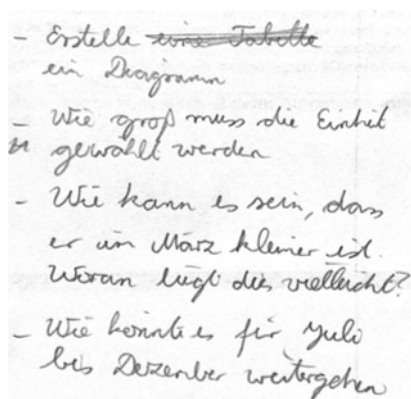 - Erstelle eine Tabelle
ein Diagramm
- Wie groß muss die Einheit
gewählt werden
- Wie kann es sein, dass
er im März kleiner ist.
Woran liegt dies vielleicht?
- Wie könnte es für Juli
bis Dezember weitergehen